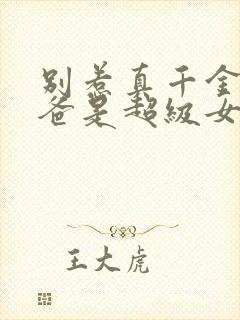 别惹真千金
爸是超级女
王大虎